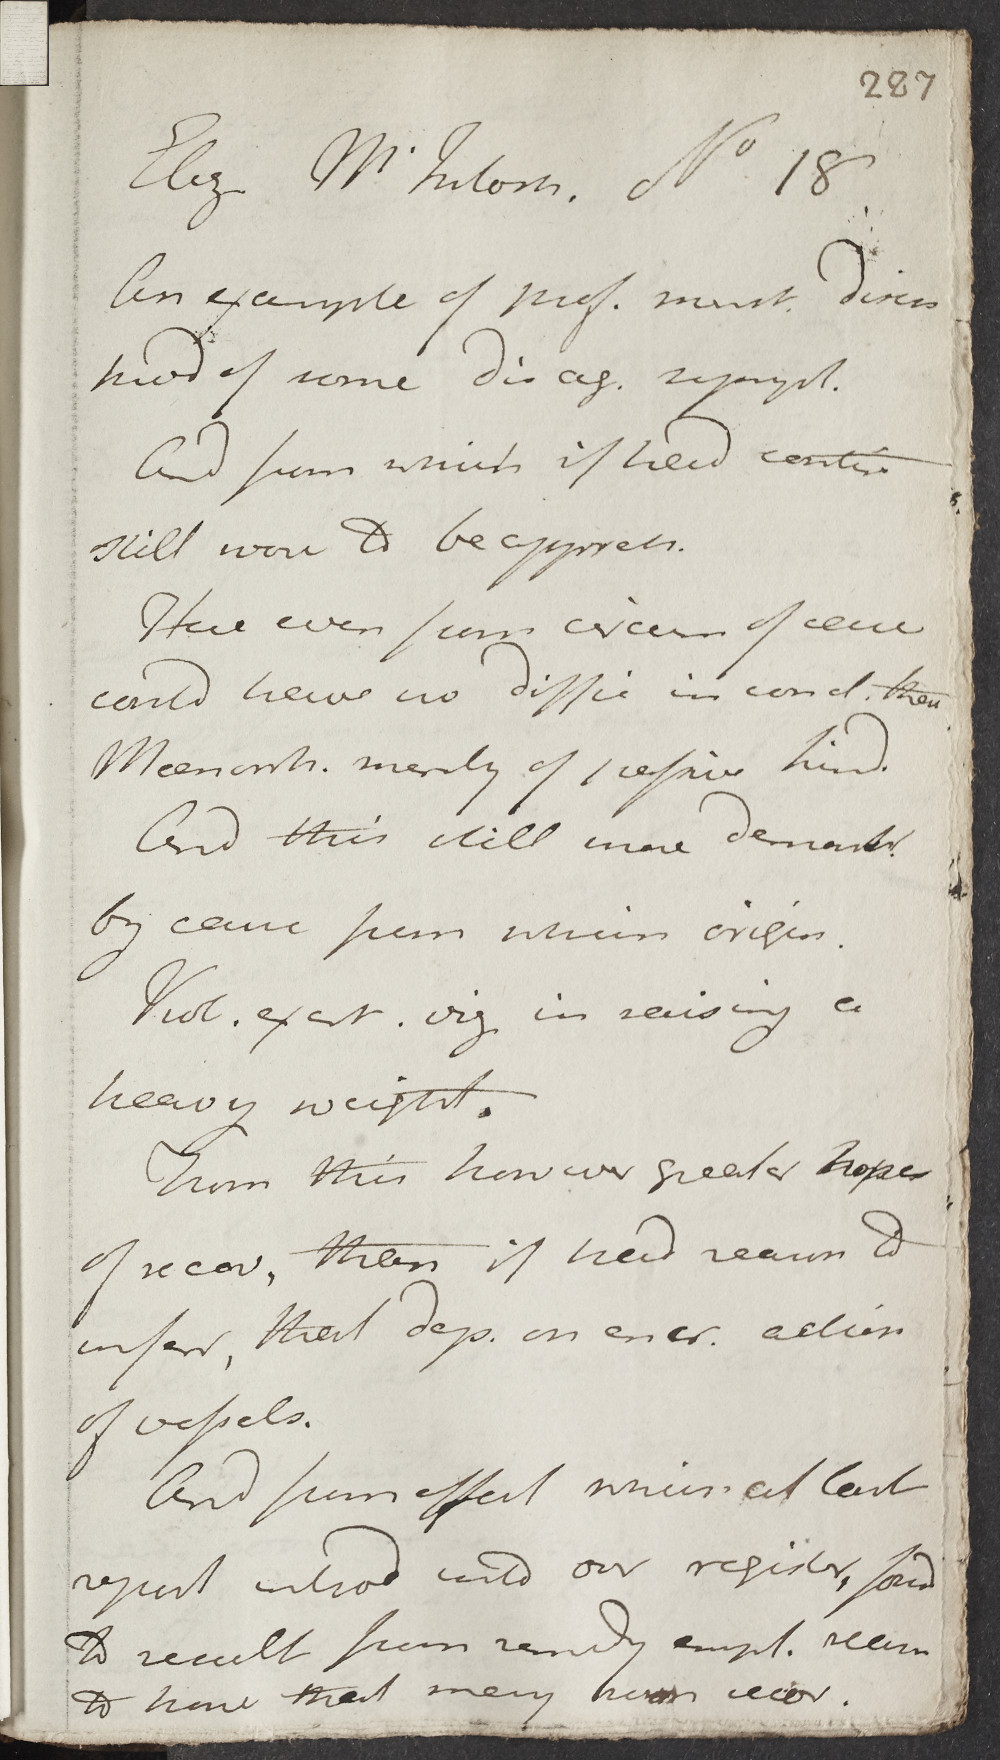 287
Eliz McIntosh. No 18
An example of prof. menst. discov
prod of some disag. sympt.
And from which if had contin
still more to be appreh.
Here even from circum of case
could have no diffic in concl. then
Menorrh. merely of passive kind.
And this still more demonstr.
by cause from which origin.
Viol. exert. viz in raising a
heavy weight.
From this however greater hopes
of recov, then if had reason to
infer, that dep. on encr. action
of vessels.
And from effect which at last
report introd into our register, found
to result from remedy empl. reason
to hope that may soon recov.